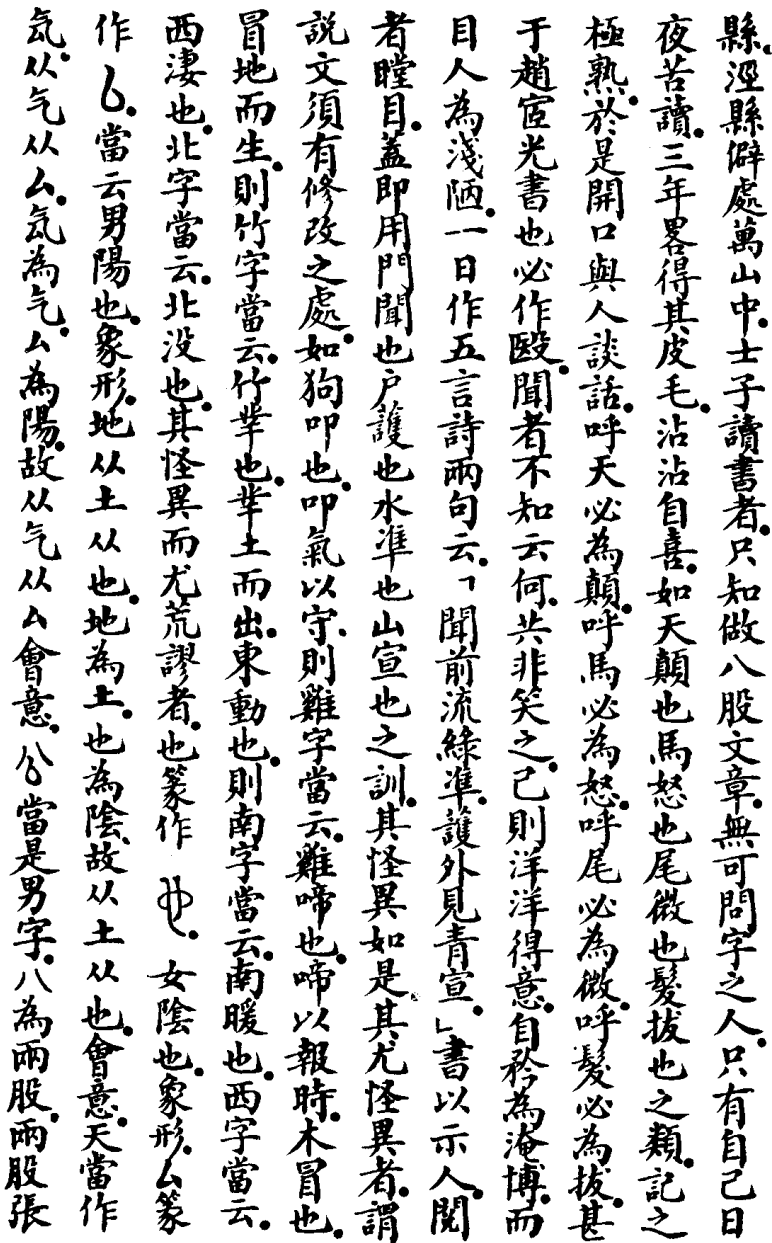 縣。涇縣僻處萬山中。士子讀書者。只知做八股文章。無可問字之人。只有自己日
夜苦讀。三年畧得其皮毛。沾沾自喜。如天顛也馬怒也尾微也髮拔也之類。記之
極熟。於是開口與人談話。呼天必為顛。呼馬必為怒。呼尾必為微。呼髮必為拔。甚
于趙宧光書也必作殹。聞者不知云何。共非笑之。己則洋洋得意。自矜為淹博。而
目人為淺陋。一日作五言詩兩句云。「聞前流綠準。護外見青宣。」書以示人。閱
者瞠目。蓋即用門聞也户護也水準也山宣也之訓。其怪異如是。其尤怪異者。謂
說文須有修改之處。如狗叩也。叩氣以守。則雞字當云。雞啼也。啼以報時。木冒也。
冒地而生。則竹字當云。竹茟也。茟土而出。東動也。則南字當云。南暖也。西字當云。
西淒也。北字當云。北没也。其怪異而尤荒謬者。也篆作 。女陰也。象形。厶篆
作 。當云男陽也。象形。地从土从也。地為土。也為陰。故从土从也。會意。天當作
氙。从气从厶。氙為气。厶為陽。故从气从厶會意。公當是男字。八為兩股。兩股張